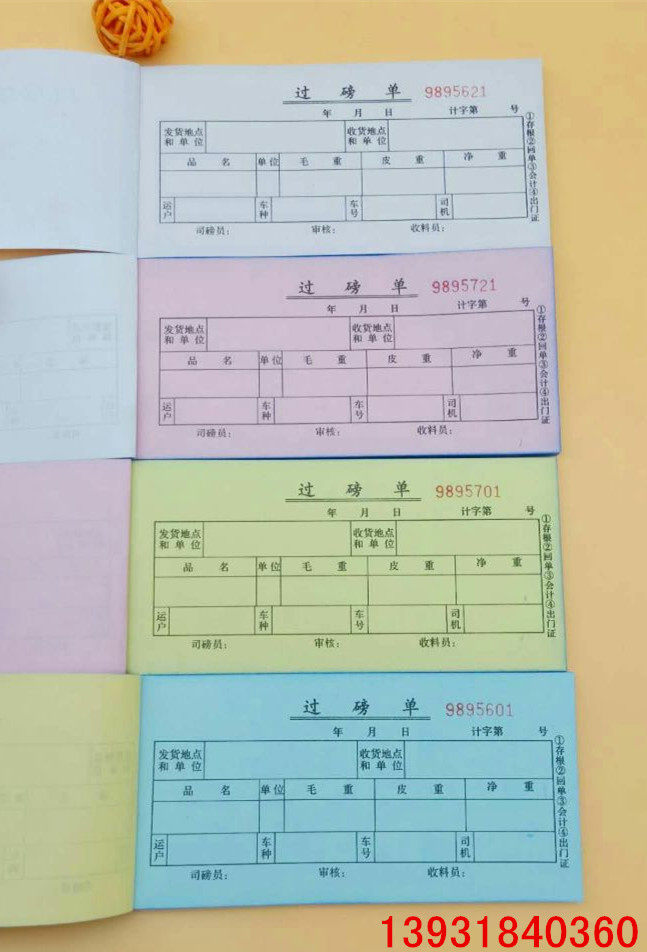 过磅单 9895621
年 月 日 计字第 号
发货地点和单位 收货地点和单位
品名 单位 毛重 皮重 净重
运户 车种 车号 司机
司磅员： 审核： 收料员：
①存根②回单③会计④出门证
过磅单 9895721
年 月 日 计字第 号
发货地点和单位 收货地点和单位
品名 单位 毛重 皮重 净重
运户 车种 车号 司机
司磅员： 审核： 收料员：
①存根②回单③会计④出门证
过磅单 9895701
年 月 日 计字第 号
发货地点和单位 收货地点和单位
品名 单位 毛重 皮重 净重
运户 车种 车号 司机
司磅员： 审核： 收料员：
①存根②回单③会计④出门证
过磅单 9895601
年 月 日 计字第 号
发货地点和单位 收货地点和单位
品名 单位 毛重 皮重 净重
运户 车种 车号 司机
司磅员： 审核： 收料员：
①存根②回单③会计④出门证
13931840360